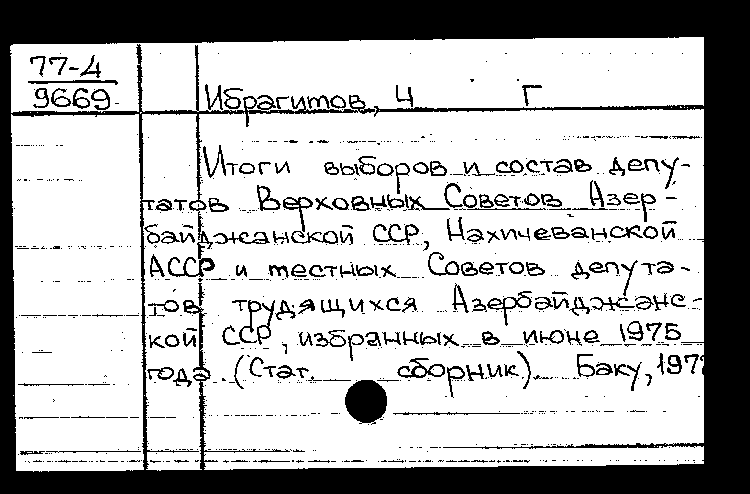 77-4
9669
Ибрагитов, Ч Г
Итоги выборов и состав депу-
татов Верховных Советов Азер-
байджанской ССР, Нахичеванской
АССР и тестных Советов депута-
тов трудящихся Азербайджанс-
кой ССР, избранных в июне 1975
года. (Стат. сборник). Баку,